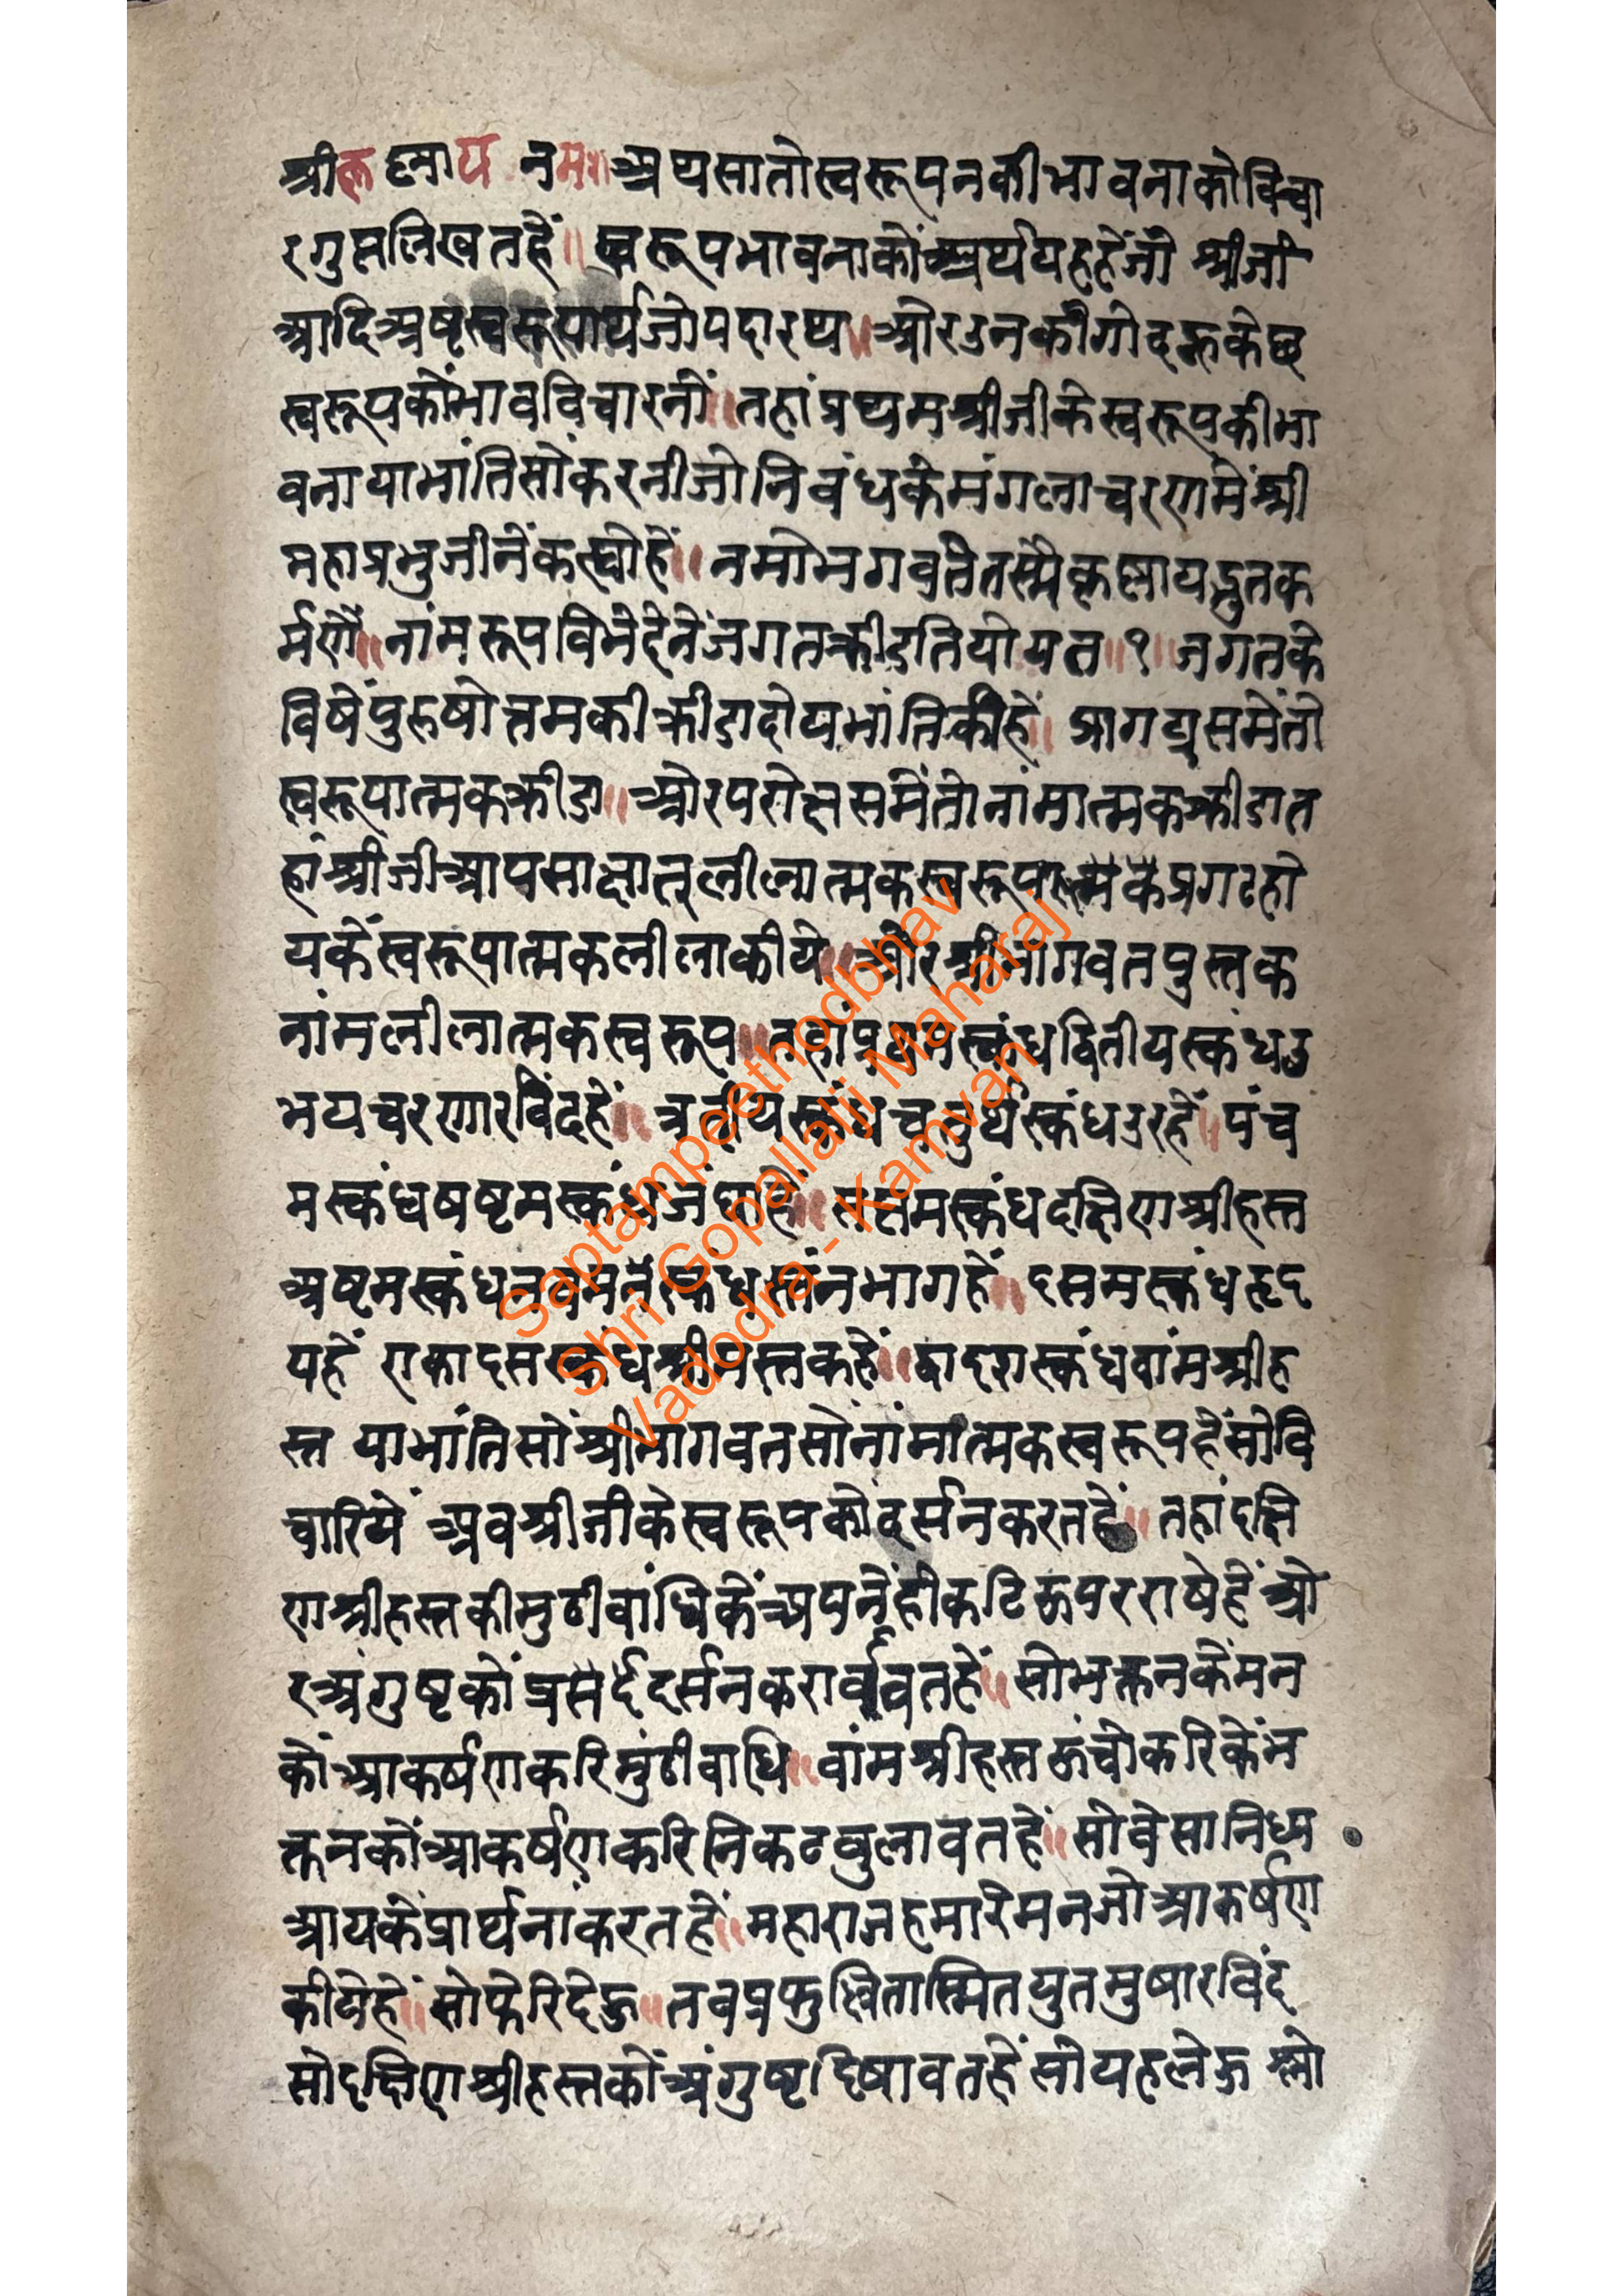 श्रीकृष्णाय नमः॥ अथसातोस्वरूपनकीभावनाकोविचा
रगुप्तलिखतहैं॥ स्वरूपभावनाकोंअर्थयहहेंजो श्रीजी
आदिअष्टस्वरूपार्थजोपदारथ॥ओरउनकीगोदहुकेछ
स्वरूपकोंभावविचारनीं॥तहांप्रथमश्रीजीकेस्वरूपकीभा
वनायाभांतिसोंकरनीजोनिवंधकेमंगलाचरणमेंश्री
महाप्रभुजीनेंकह्योहें॥नमोभगवतेतस्मैकृष्णायद्भुतक
र्मणे॥नांमरूपविभेदेनेंजगतक्रीडतियोयत॥१॥जगतके
विषेंपुरुषोत्तमकीक्रीडादोयभांतिकीहें॥ प्रागट्यसमेंतो
स्वरूपात्मकक्रीडा॥ओरपरोक्षसमेंतोनांमात्मकक्रीडात
हांश्रीजीआपसाक्षात्लीलात्मकस्वरूपात्मकप्रगटहो
यकेंस्वरूपात्मकलीलाकीये॥ओरश्रीभागवतपुस्तक
नांमलीलात्मकस्वरूप॥तहांप्रथमस्कंधद्वितीयस्कंधउ
भयचरणारविंदहें॥ त्रतीयस्कंधचतुर्थस्कंधउरहें॥पंच
मस्कंधषष्टमस्कंधजंघाहें॥ सप्तमस्कंधदक्षिणश्रीहस्त
अष्टमस्कंधनवमनेंस्कंधस्तंनभागहें॥ दसमस्कंधहृद
यहें एकादसस्कंधश्रीमस्तकहें॥द्वादशस्कंधवांमश्रीह
स्त याभांतिसोंश्रीभागवतसोनांमात्मकस्वरूपहेंसोवि
चारियें अवश्रीजीकेस्वरूपकोंदर्सनकरतहें॥ तहांदक्षि
णश्रीहस्तकीमुठीवांधिकेंअपनेंहीकटिऊपरराषेहें ओ
रअंगुष्टकों दर्सनकरावतहें॥ सोभक्तनकेंमन
कोंआकर्षणकरिमुंठीवाधि॥वांमश्रीहस्तऊंचोकरिकेंभ
क्तनकोंआकर्षणकरिनिकटवुलावतहें॥सोवेसानिध्य
आयकेंप्रार्थनांकरतहें॥महाराजहमारेमनजोआकर्षण
कीयेहें॥सोफेरिदेऊ॥तवप्रफुल्लितास्मितयुतमुषारविंद
सोदक्षिणश्रीहस्तकोंअंगुष्टदिषावतहेंसोयहलेऊ श्लो
Saptampeethodbhav
Shri Gopallalji Maharaj
Vadodra - Kamvan